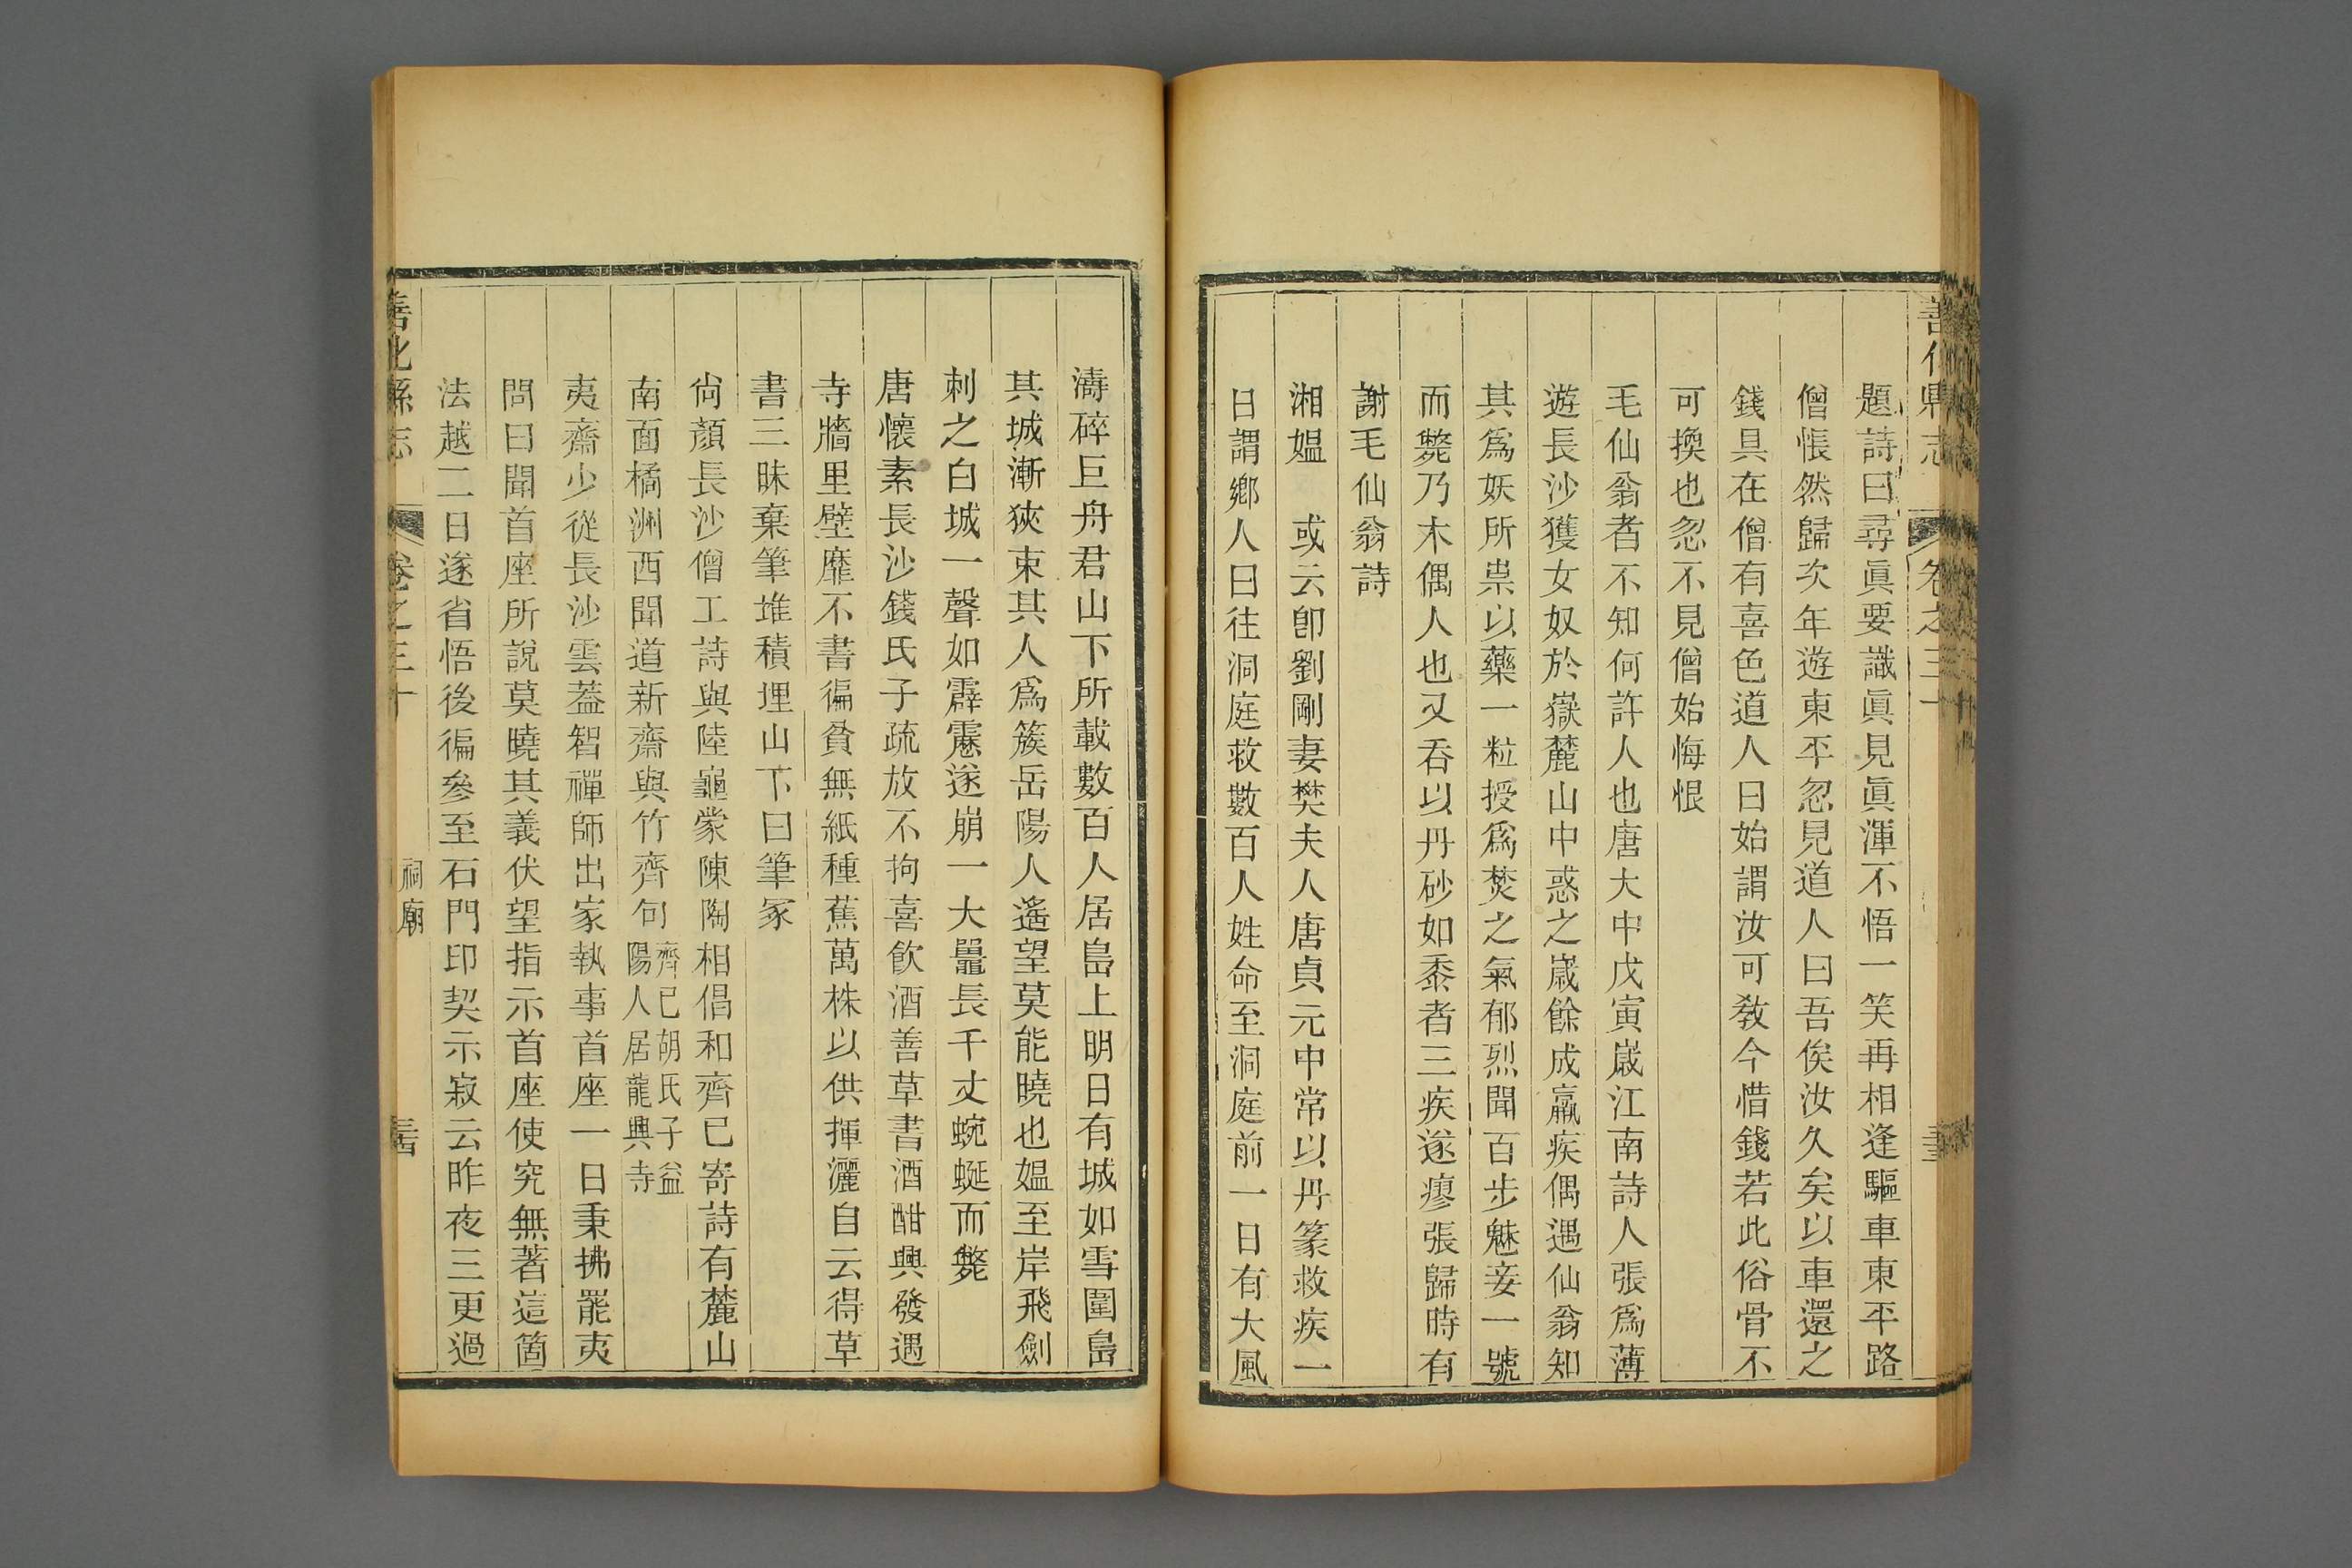 善化縣志 卷之三十
題詩曰尋眞要識眞見眞渾不悟一笑再相逢驅車東平路
僧悵然歸次年遊東平忽見道人曰吾俟汝久矣以車還之
錢具在僧有喜色道人曰始謂汝可敎今惜錢若此俗骨不
可換也忽不見僧始悔恨
毛仙翁者不知何許人也唐大中戊寅嵗江南詩人張爲薄
遊長沙獲女奴於嶽麓山中惑之嵗餘成羸疾偶遇仙翁知
其爲妖所祟以藥一粒授爲焚之氣郁烈聞百步魅妾一號
而斃乃木偶人也又吞以丹砂如黍者三疾遂瘳張歸時有
謝毛仙翁詩
湘媼 或云卽劉剛妻樊夫人唐貞元中常以丹篆救疾一
日謂鄉人曰往洞庭救數百人姓命至洞庭前一日有大風
濤碎巨舟君山下所載數百人居島上明日有城如雪圍島
其城漸狹束其人爲簇岳陽人遙望莫能曉也媼至岸飛劍
刺之白城一聲如霹靂遂崩一大鼉長千丈蜿蜒而斃
唐懷素長沙錢氏子疏放不拘喜飮酒善草書酒酣興發遇
寺牆里壁靡不書徧貧無紙種蕉萬株以供揮灑自云得草
書三昧棄筆堆積埋山下曰筆冢
尙顏長沙僧工詩與陸龜蒙陳陶相倡和齊已寄詩有麓山
南面橘洲西聞道新齋與竹齊句 齊已胡氏子益
陽人居龍興寺
夷齋少從長沙雲蓋智禪師出家執事首座一日秉拂罷夷
問曰聞首座所說莫曉其義伏望指示首座使究無著這箇
法越二日遂省悟後徧參至石門印契示寂云昨夜三更過
善化縣志 卷之三十 祠廟